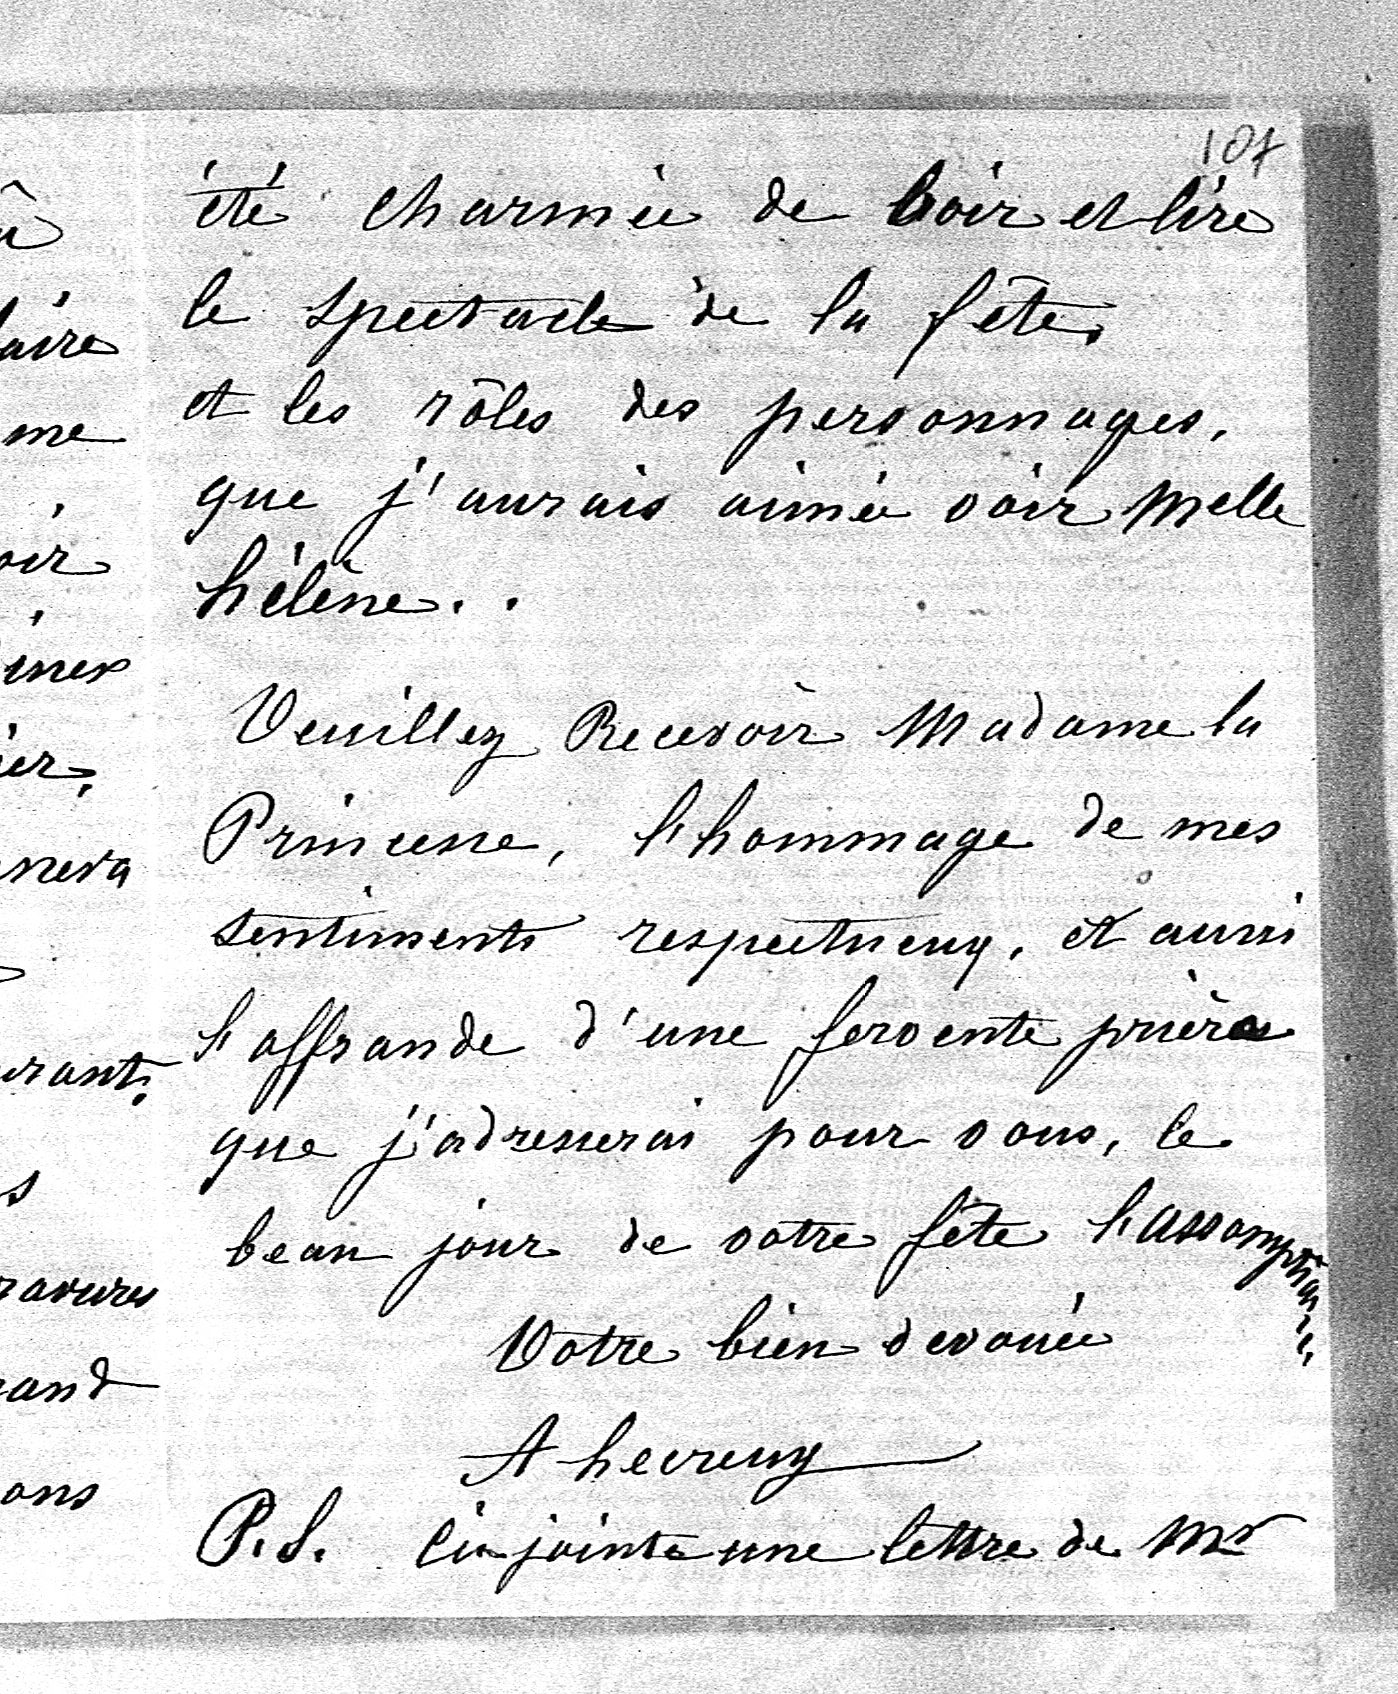 107
été charmée de voir et lire
le spectacle de la fête,
et les rôles des personnages,
que j'aurais aimée voir Melle
hélène..
Veuillez Recevoir Madame la
Princesse, l'hommage de mes
sentiments respectueux, et aussi
l'offrande d'une fervente prière
que j'adresserai pour vous, le
beau jour de votre fête l'Assomption
Votre bien dévouée
A heureux
P.S. Ci-jointe une lettre de Mr
aire
me
oir
ines
ier,
nera
rants.
s
ravures
and
ons